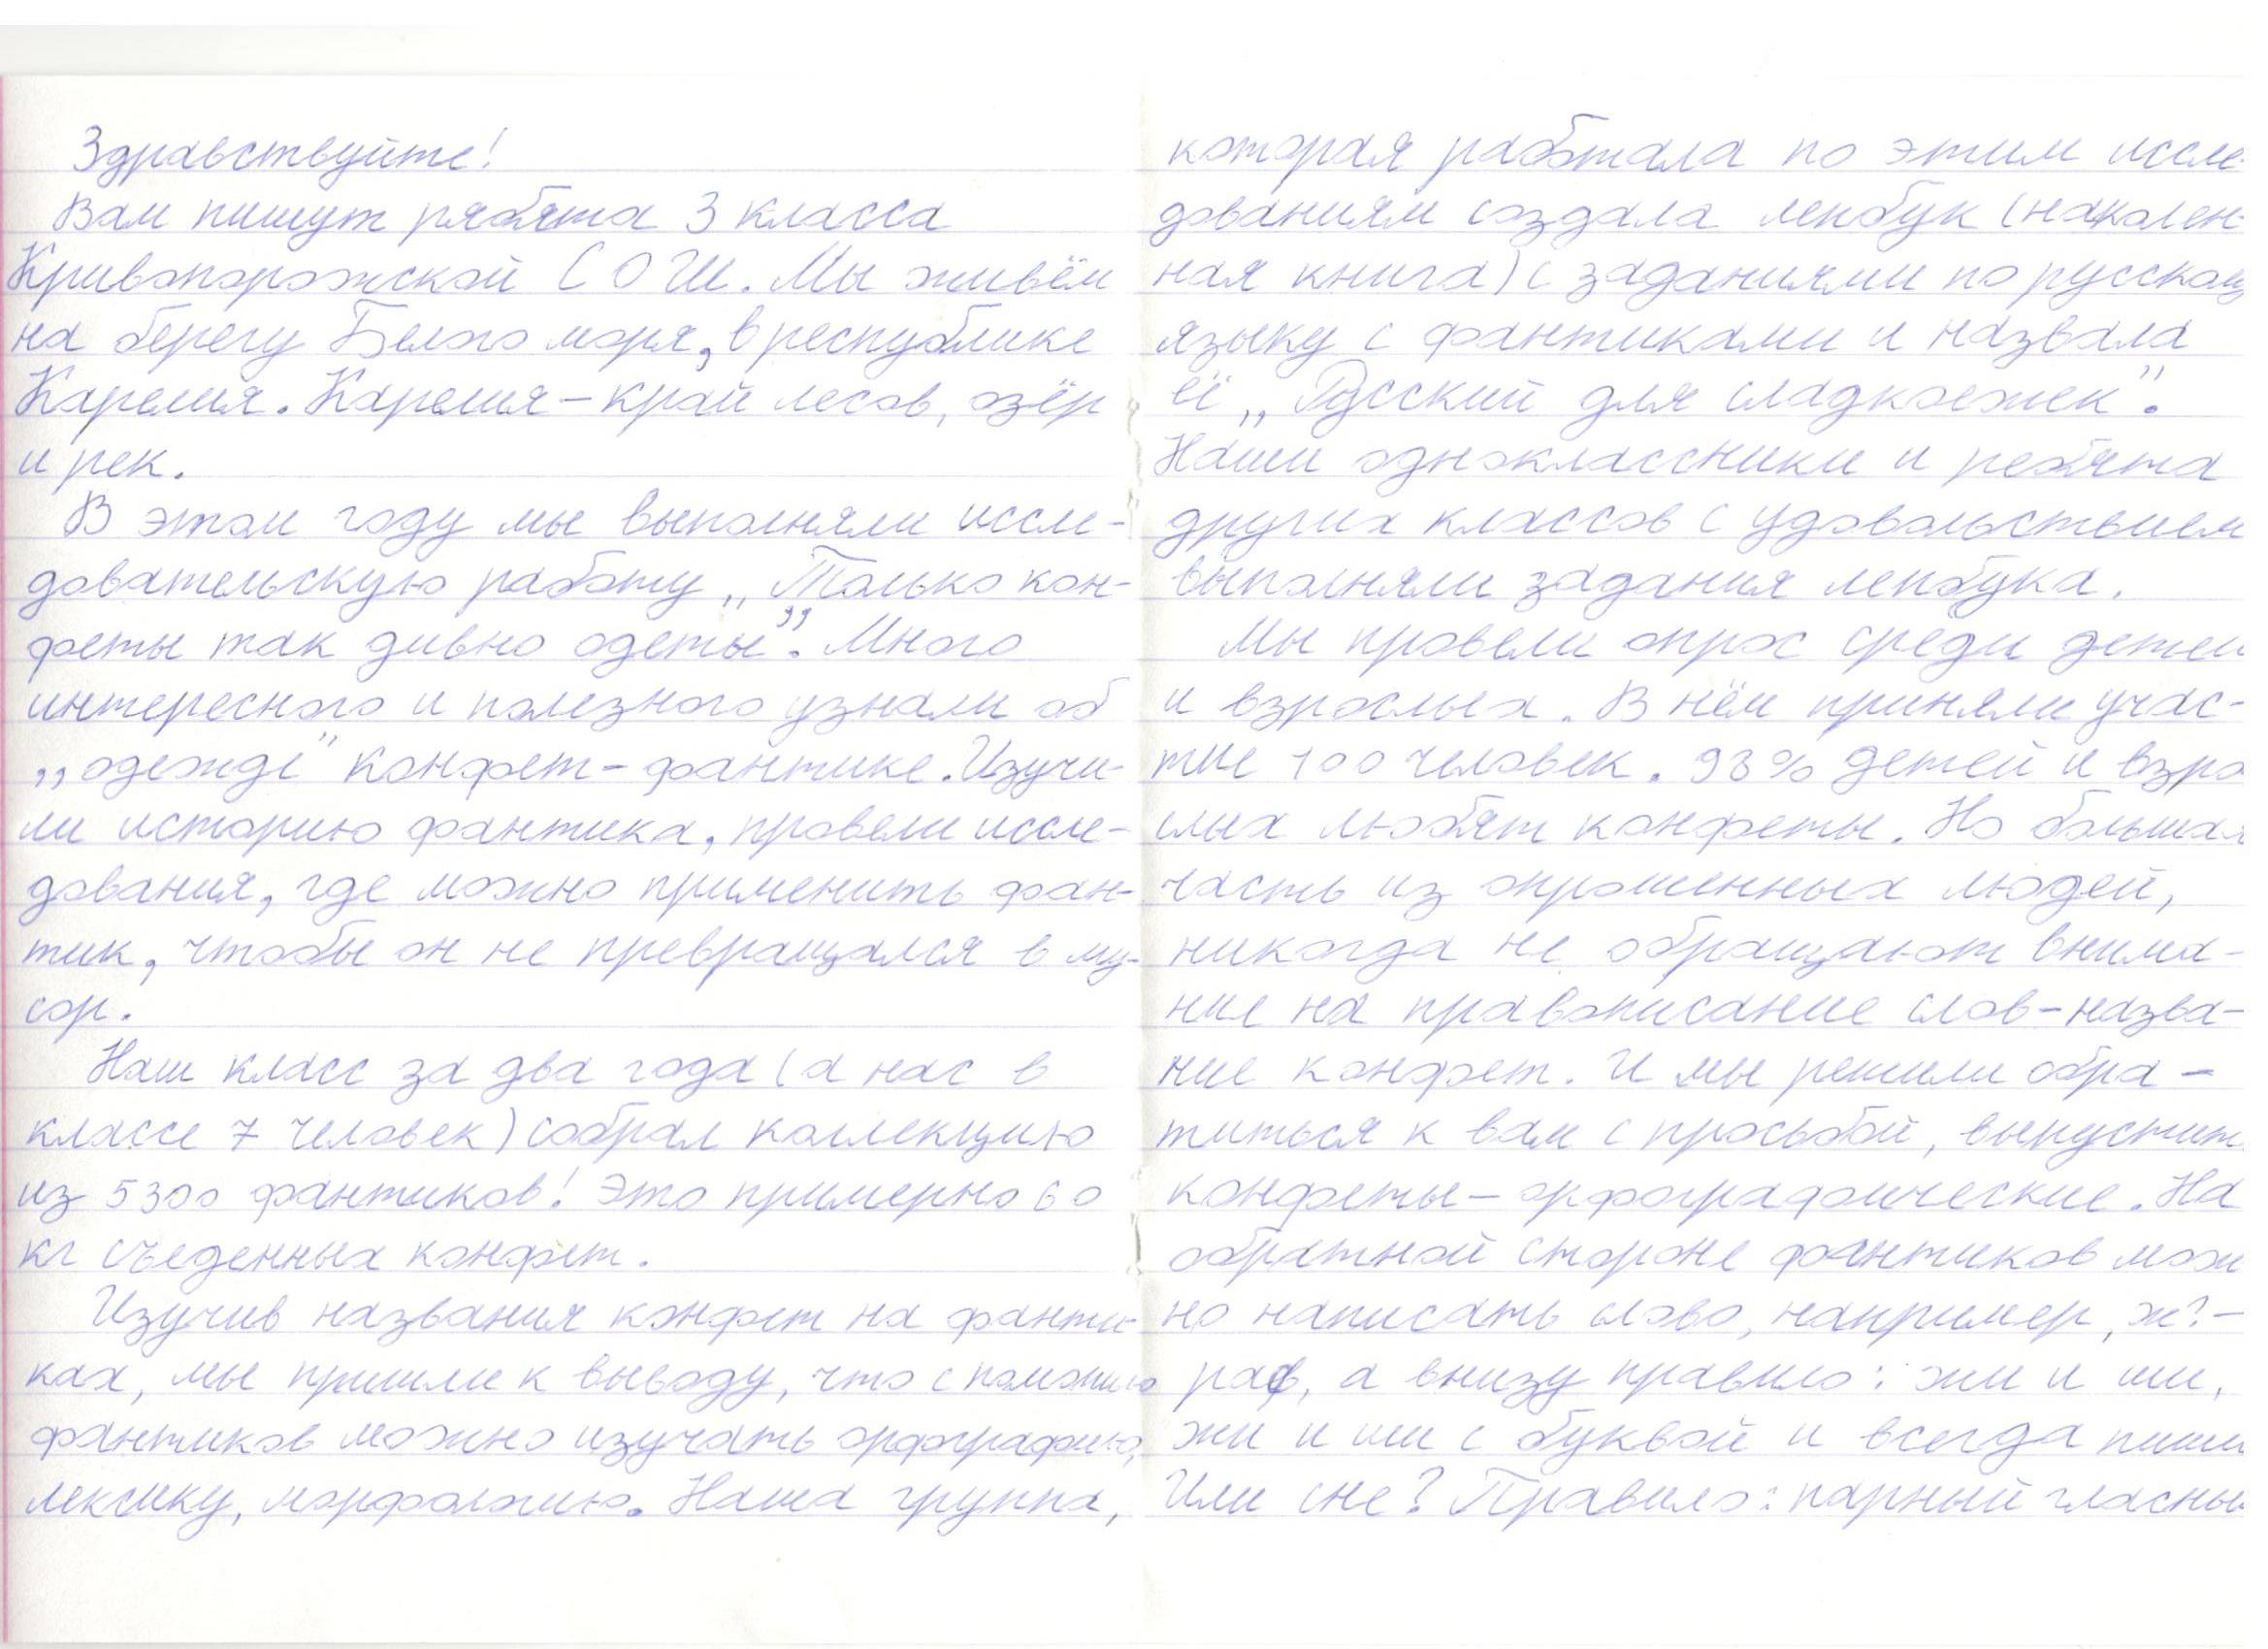 Здравствуйте!
Вам пишут рябята 3 класса
Кривопорожской СОШ. Мы живём
на берегу Белого моря, в республике
Карелия. Карелия – край лесов, озёр
и рек.
В этом году мы выполняли иссле-
довательскую работу „Только кон-
феты так дивно одеты”. Много
интересного и полезного узнали об
„одежде” конфет – фантике. Изучи-
ли историю фантика, провели иссле-
дования, где можно применить фан-
тик, чтобы он не превращался в му-
сор.
Наш класс за два года (а нас в
классе 7 человек) собрал коллекцию
из 5300 фантиков! Это примерно 60
кг съеденных конфет.
Изучив названия конфет на фанти-
ках, мы пришли к выводу, что с помощью
фантиков можно изучать орфографию,
лексику, морфологию. Наша группа,
которая работала по этим иссле-
дованиям создала лепбук (наколен-
ная книга) с заданиями по русском
языку с фантиками и назвала
её „Русский для сладкоежек”.
Наши одноклассники и ребята
других классов с удовольствием
выполняли задания лепбука.
Мы провели опрос среди детей
и взрослых. В нём приняли учас-
тие 100 человек. 93% детей и взро
слых любят конфеты. Но большая
часть из опрошенных людей,
никогда не обращают внима-
ние на правописание слов – назва-
ние конфет. И мы решили обра-
титься к вам с просьбой, выпустит
конфеты – орфографические. На
обратной стороне фантиков мож
но написать слово, например, ж?-
раф, а внизу правило: жи и ши,
жи и ши с буквой и всегда пиши
Или сне? Правило: парный гласны